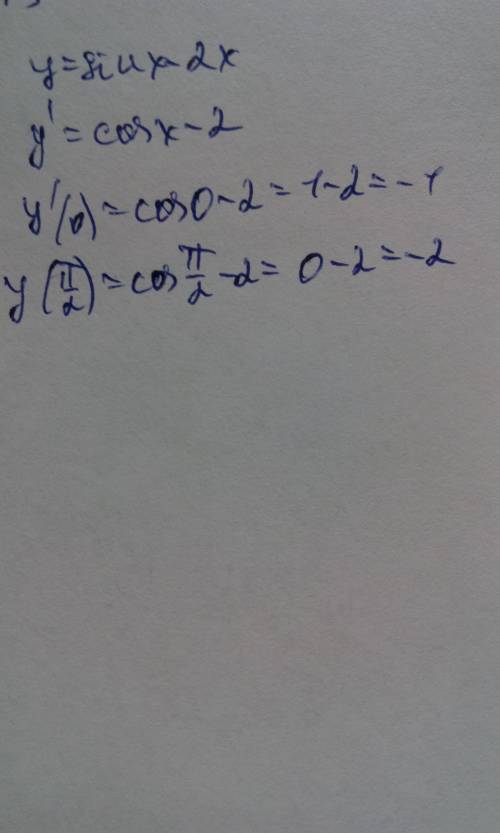 y = sin x - 2x
y' = cos x - 2
y'(0) = cos 0 - 2 = 1 - 2 = -1
y(π/2) = cos π/2 - 2 = 0 - 2 = -2